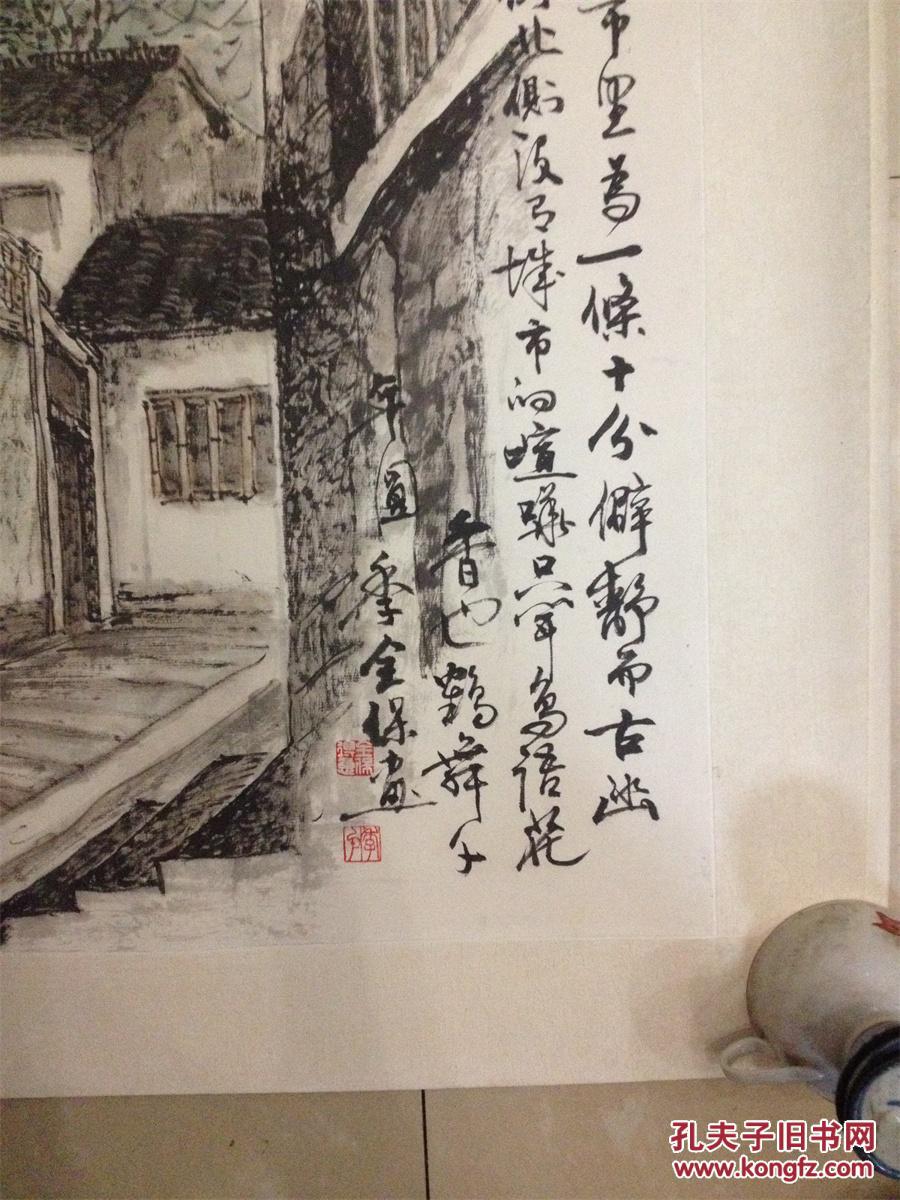 市里為一條十分僻靜而古幽
北側没有城市的喧譟只聞鳥語花
香也鶴舞
年 季全保畫
孔夫子旧书网
www.kongfz.com